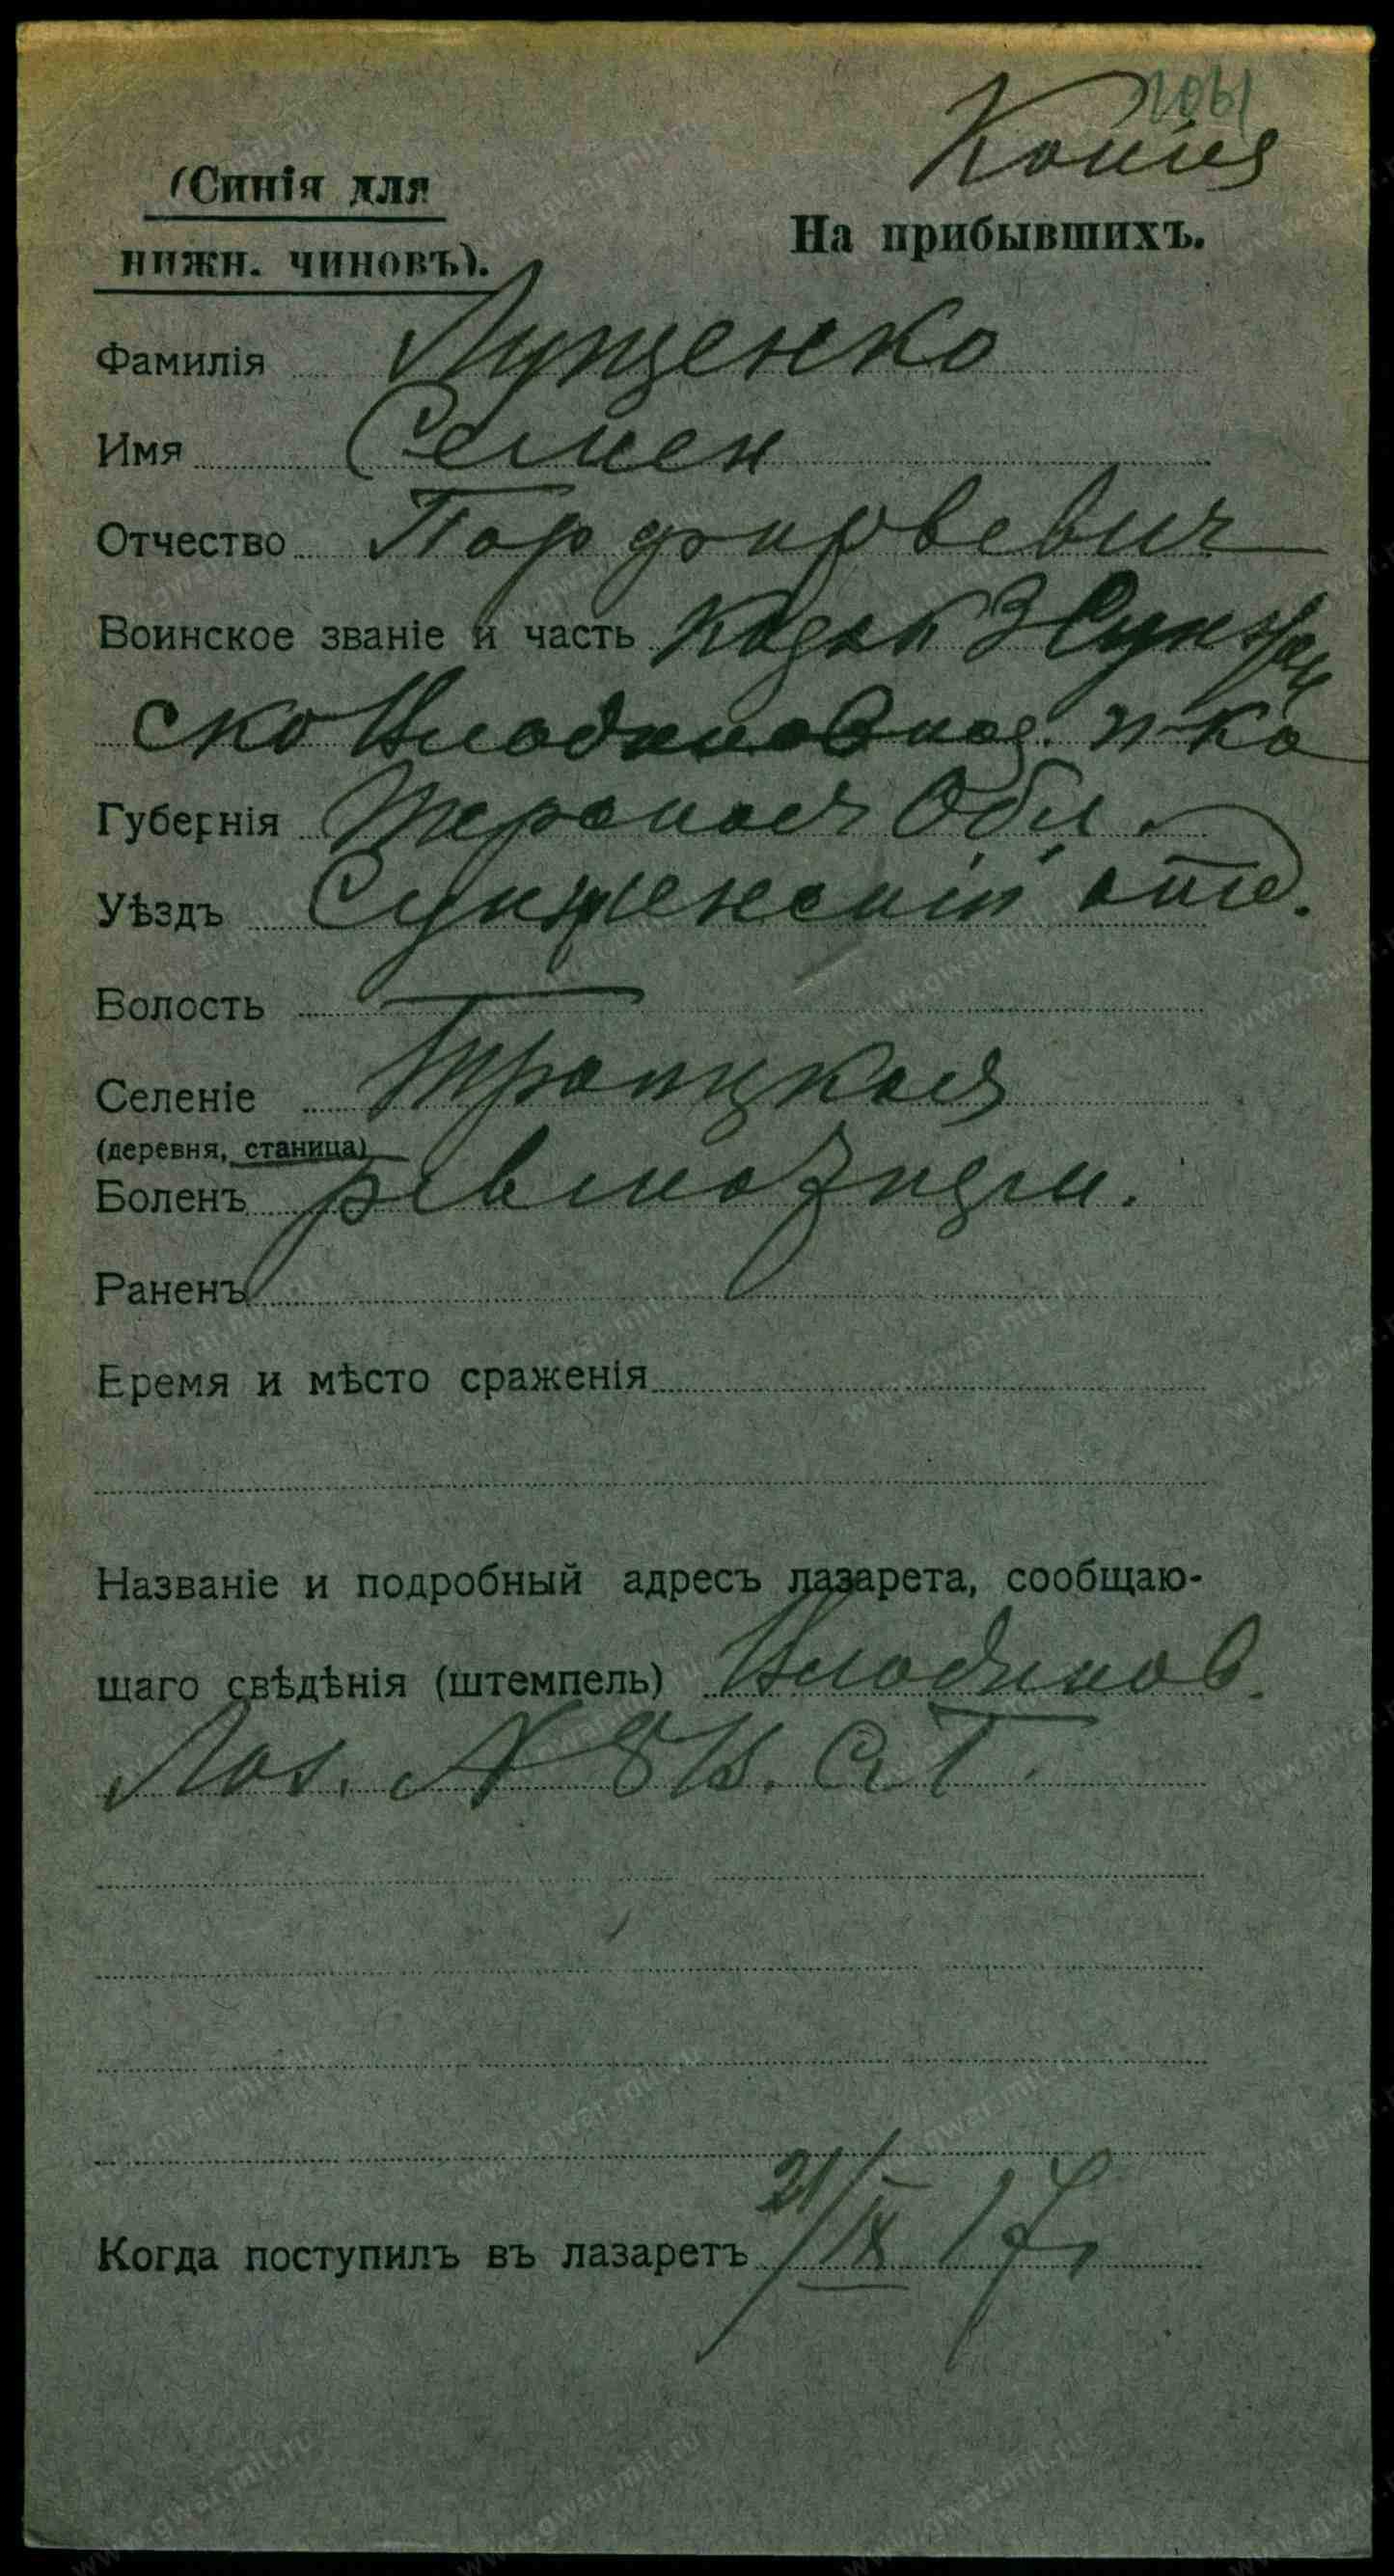 Копия
(Синія для
На прибывшихъ.
нижн. чиновъ).
Фамилія Лущенко
Имя Семен
Отчество Порфирьевич
Воинское званіе и часть Казак 3 Сунжен
ско Владикав каз. п-ка
Губернія Терская Обл.
Уѣздъ Сунженскій отд.
Волость
Селеніе Троицкая
(деревня, станица)
Боленъ
Раненъ
Время и мѣсто сраженія
Названіе и подробный адресъ лазарета, сообщаю-
щаго свѣдѣнія (штемпель) Владикав.
Лаз. № 8 В. С. Г.
Когда поступилъ въ лазаретъ 21/IX 17 г